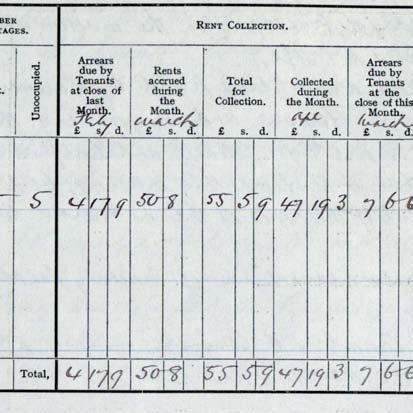 BER
TAGES.
RENT COLLECTION.
Unoccupied.
Arrears due by Tenants at close of last Month.
Rents accrued during the Month.
Total for Collection.
Collected during the Month.
Arrears due by Tenants at the close of this Month.
Feby March March
£ s. d. £ s. d. £ s. d. £ s. d. £ s.
5 4 17 9 50 8 55 5 9 47 19 3 7 6 6
Total, 4 17 9 50 8 55 5 9 47 19 3 7 6 6